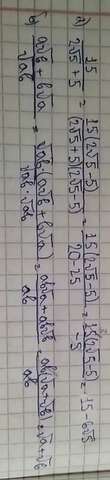 а) 15/(2√5+5) = 15(2√5-5)/((2√5+5)(2√5-5)) = 15(2√5-5)/(20-25) = 15(2√5-5)/(-5) = 15-6√5
б) (a√b+b√a)/√ab = √ab(a√b+b√a)/(√ab·√ab) = (ab√a+ab√b)/ab = ab(√a+√b)/ab = √a+√b